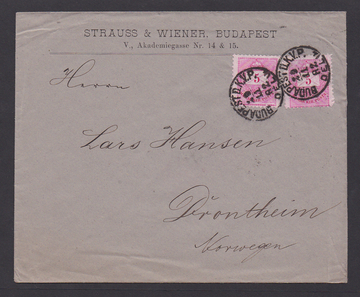 STRAUSS & WIENER, BUDAPEST
V., Akademiegasse Nr. 14 & 15.
BUDAPEST D.K.V.P.
BUDAPEST D.K.V.P.
5
5
Herrn
Lars Hansen
Drontheim
Norwegen